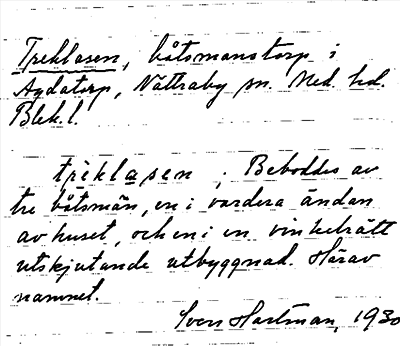 Treklasen, båtsmanstorp i
Agdatorp, Nättraby sn. Med. hd.
Blek. l.
treklasen. Beboddes av
tre båtsmän, en i vardera ändan
av huset, och en i en vinkelrätt
utskjutande utbyggnad. Härav
namnet.
Sven Hartman, 1930